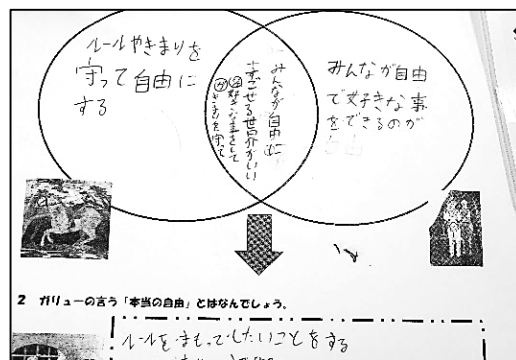 ルールやきまりを
守って自由に
する
みんなが自由に
すごせる世界がいい
好きな事をして
きまりを守って
みんなが自由
で好きな事
をできるのが
自由
2 ガリューの言う「本当の自由」とはなんでしょう。
ルールをまもってしたいことをする